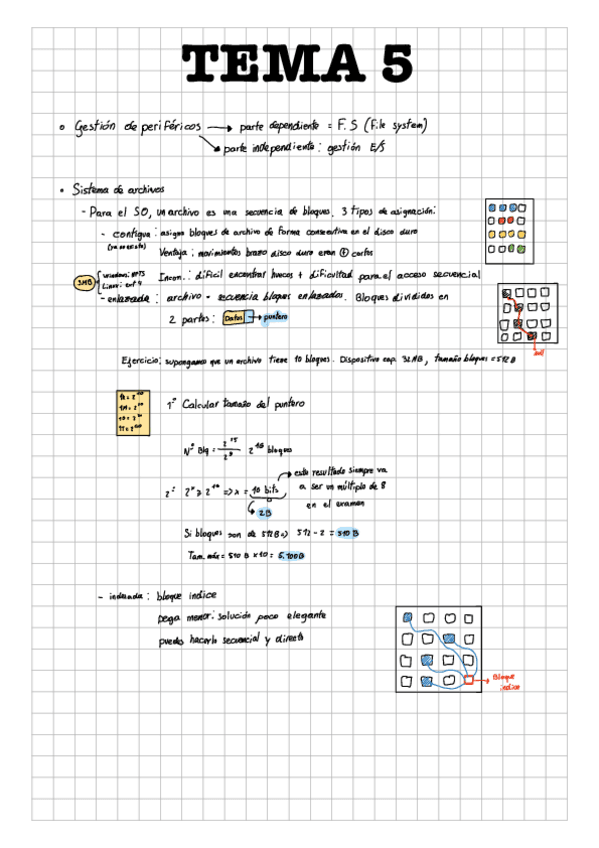 TEMA 5
• Gestión de periféricos → parte dependiente = F.S (File system)
→ parte independiente: gestión E/S
• Sistema de archivos
- Para el SO, un archivo es una secuencia de bloques. 3 tipos de asignación:
- contigua: asigna bloques de archivo de forma consecutiva en el disco duro
(ya no existe)
Ventaja: movimientos brazo disco duro eran ⊕ cortos
Incon.: difícil encontrar huecos + dificultad para el acceso secuencial
Linux: ext 4
- enlazada: archivo = secuencia bloques enlazados. Bloques divididos en
2 partes: Datos → puntero
null
Ejercicio: supongamos que un archivo tiene 10 bloques. Dispositivo cap. 32MB, tamaño bloques = 512B
1º Calcular tamaño del puntero
Nº Blq =
bloques
→ este resultado siempre va
a ser un múltiplo de 8
en el examen
bits
2B
Si bloques son de 512B => 512 - 2 = 510 B
Tam. máx = 510 B x 10 = 5.100B
- indexada: bloque indice
pega menor: solución poco elegante
puedo hacerlo secuencial y directo
Bloque
indice